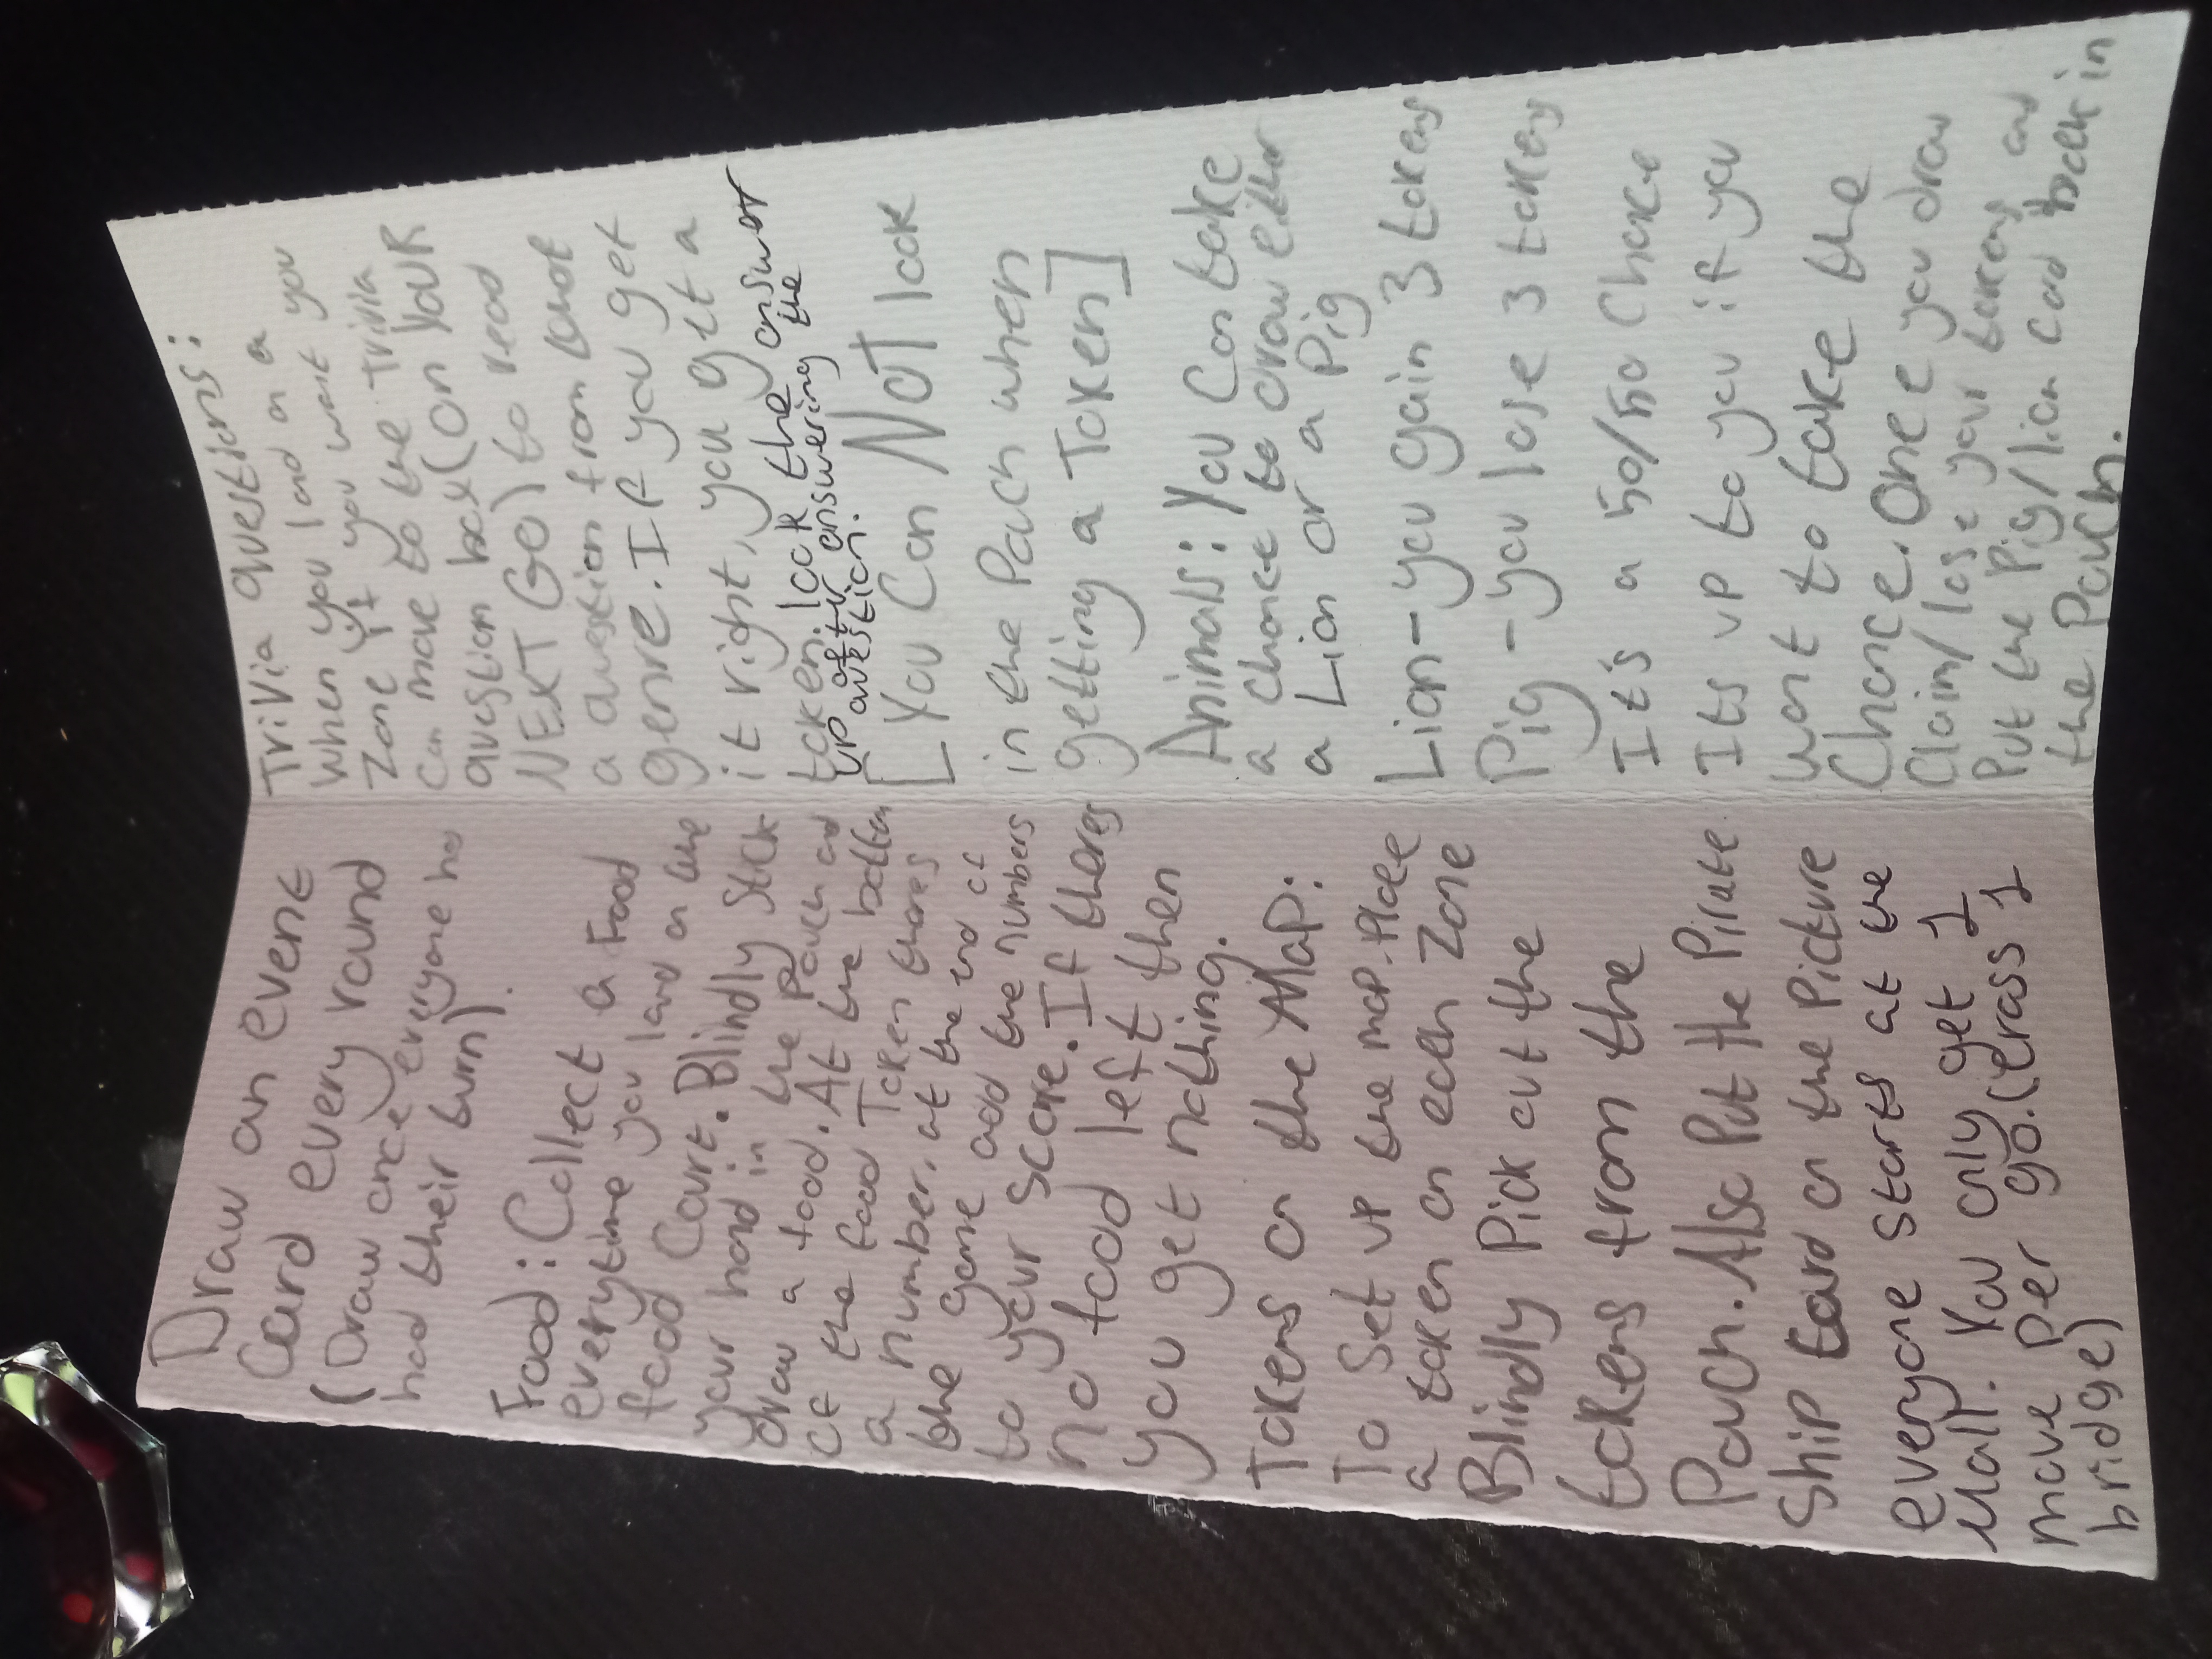 Draw an event
Card every round
(Draw once everyone has
had their turn).
Food: Collect a Food
everytime you land on the
food Court. Blindly Stick
your hand in the Pouch and
draw a food. At the bottom
of the food Token theres
a number, at the end of
the game add the numbers
to your score. If theres
no food left then
you get nothing.
Tokens on the Map:
To Set up the map. Place
a token on each Zone
Blindly Pick out the
tokens from the
Pouch. Also Put the Pirate
Ship card on the Picture
everyone starts at the
Mall. You only get 1
move Per go. (erass 1
bridge)
TriVia questions:
When you land on a
Zone if you want you
can move to the Trivia
question box (On YOUR
NEXT GO) to read
a question from that
genre. If you get
it right, you get a
token. look the answer
up after answering the
question.
[You Can NOT look
in the Pouch when
getting a Token]
Animals: You Can take
a chance to draw either
a Lion or a Pig
Lion - you gain 3 tokens
Pig - you lose 3 tokens
It's a 50/50 Chance
Its up to you if you
want to take the
Chance. Once you draw
Claim/lose your tokens and
Put the Pig/lion card back in
the Pouch.